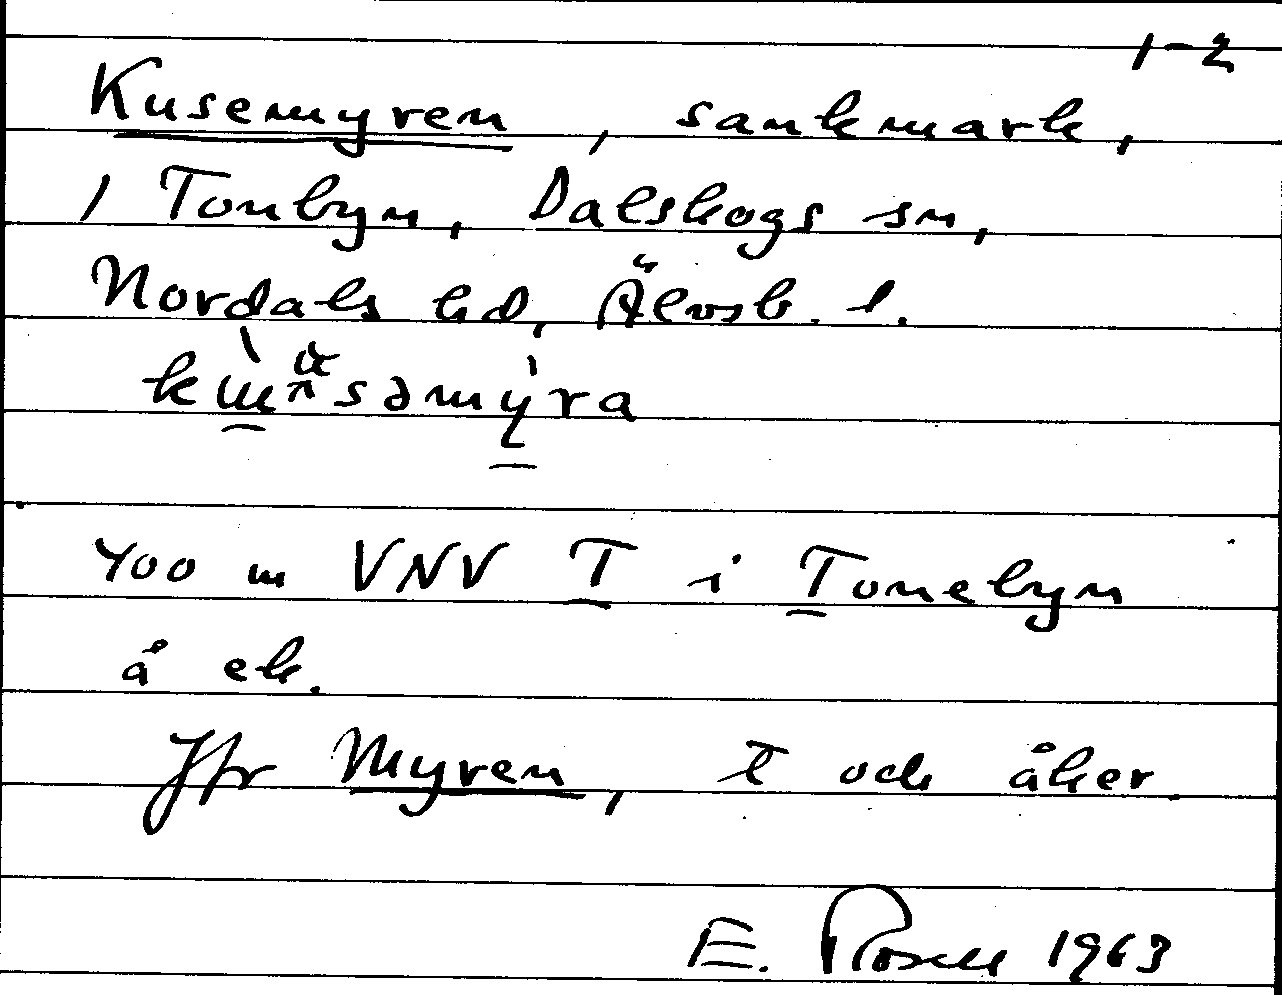 1-2
Kusemyren, sankmark,
1 Tonbyn, Dalskogs sn,
Nordals hd, Älvsb. l.
400 m VNV T i Tonebyn
å ek.
Jfr Myren, t och åker.
E. Rosell 1963